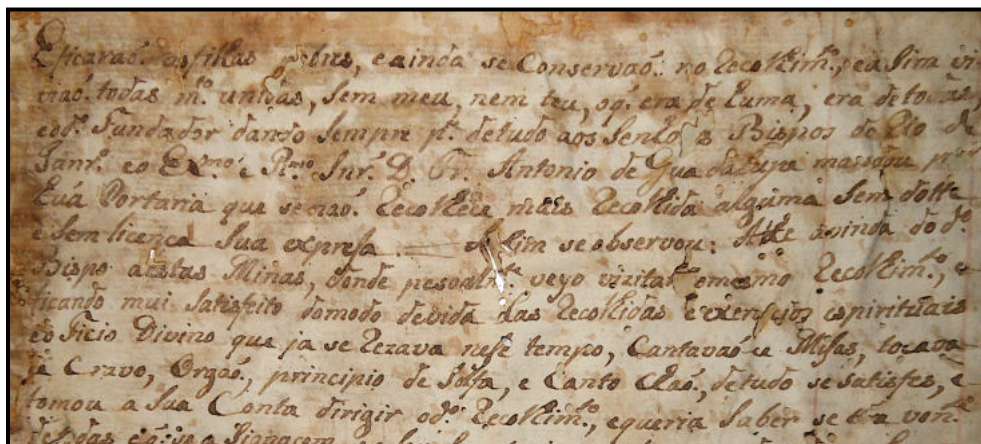 Eficaraõ. as filhas pobres, eainda se Conservaõ. no Recolhim.to, ea sim vi
viaõ. todas m.to unidas, Sem meu, nem teu, oq. era de huma, era detodas,
eod.o Fundador dando Sempre p.te detudo aos Senhores Bispos do Rio de
Janr.o eo Ex.mo e R.mo Snr. D. Fr. Antonio de Guadalupe mandou
huã Portaria que senaõ. Recolhece mais Recolhida alguma Sem dotte
e Sem licença Sua expresa Asim se observou: Athe avinda do d.o
Bispo aestas Minas, donde pesoalm.te veyo vizitar omesmo Recolhim.to, e
ficando mui Satisfeito domodo devida das Recolhidas e exercicios espirituais
eoficio Divino que ja se Rezava nese tempo, Cantavaõ-se Misas, tocava
ja Cravo, Orgaõ, principio de Solfa, e Canto Chaõ. detudo se satisfes, e
tomou a Sua Conta dirigir od.o Recolhim.to, equeria Saber se